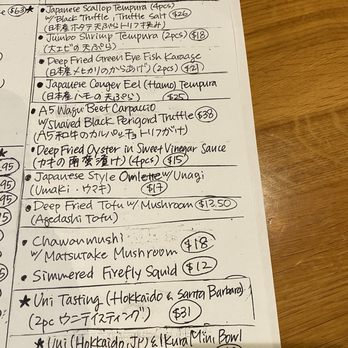 $63
★ Japanese Scallop Tempura (4pcs)
w/Black Truffle, Truffle Salt $26
Jumbo Shrimp Tempura (2pcs) $18
(大エビの天ぷら)
Deep Fried Green Eye Fish Karaage
(日本産メヒカリのからあげ) (2pcs) $21
Japanese Conger Eel (Hamo) Tempura
(日本産ハモの天ぷら) $25
A5 Wagyu Beef Carpaccio
w/Shaved Black Perigord Truffle $38
A5和牛のカルパッチョトリュフがけ
Deep Fried Oyster in Sweet Vinegar Sauce
(カキの南蛮漬け) (4pcs) $15
Japanese Style Omlette w/Unagi
(Umaki・ウマキ) $17
• Deep Fried Tofu w/ Mushroom $13.50
(Agedashi Tofu)
• Chawanmushi $18
w/ Matsutake Mushroom
• Simmered Firefly Squid $12
★ Uni Tasting (Hokkaido & Santa Barbara)
(2pc ウニテイスティング) $31
★ Uni (Hokkaido, JP) & Ikura Mini Bowl